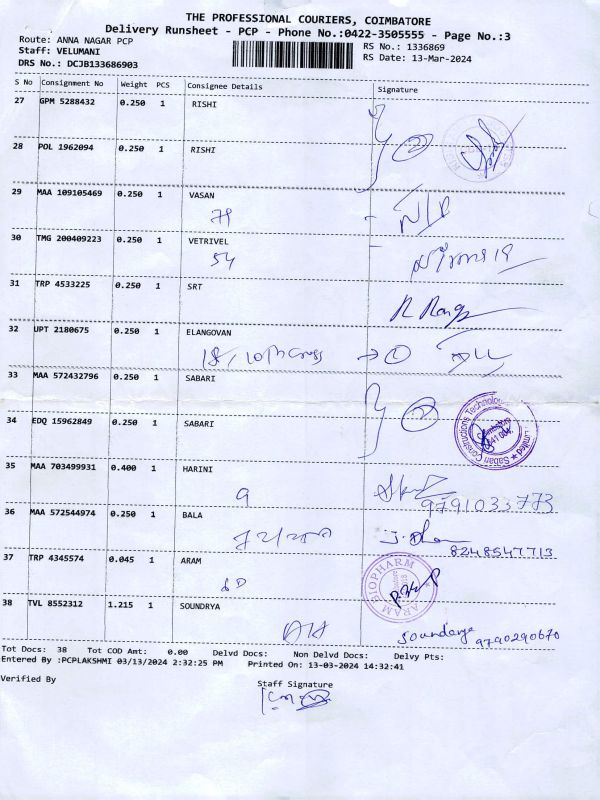 THE PROFESSIONAL COURIERS, COIMBATORE
Delivery Runsheet - PCP - Phone No.:0422-3505555 - Page No.:3
Route: ANNA NAGAR PCP
RS No.: 1336869
Staff: VELUMANI
RS Date: 13-Mar-2024
DRS No.: DCJB133686903
S No Consignment No Weight PCS Consignee Details Signature
27 GPM 5288432 0.250 1 RISHI
2
28 POL 1962094 0.250 1 RISHI
29 MAA 109105469 0.250 1 VASAN
79
30 TMG 200409223 0.250 1 VETRIVEL
54
31 TRP 4533225 0.250 1 SRT
32 UPT 2180675 0.250 1 ELANGOVAN
18, 10th cross → 1
33 MAA 572432796 0.250 1 SABARI
2
Sabari Constructions Technology Limited
34 EDQ 15962849 0.250 1 SABARI
35 MAA 703499931 0.400 1 HARINI
9 9791033773
36 MAA 572544974 0.250 1 BALA
8248547713
37 TRP 4345574 0.045 1 ARAM
ARAM BIOPHARM
38 TVL 8552312 1.215 1 SOUNDRYA
Soundarya 9790290670
Tot Docs: 38 Tot COD Amt: 0.00 Delvd Docs: Non Delvd Docs: Delvy Pts:
Entered By :PCPLAKSHMI 03/13/2024 2:32:25 PM Printed On: 13-03-2024 14:32:41
Verified By Staff Signature